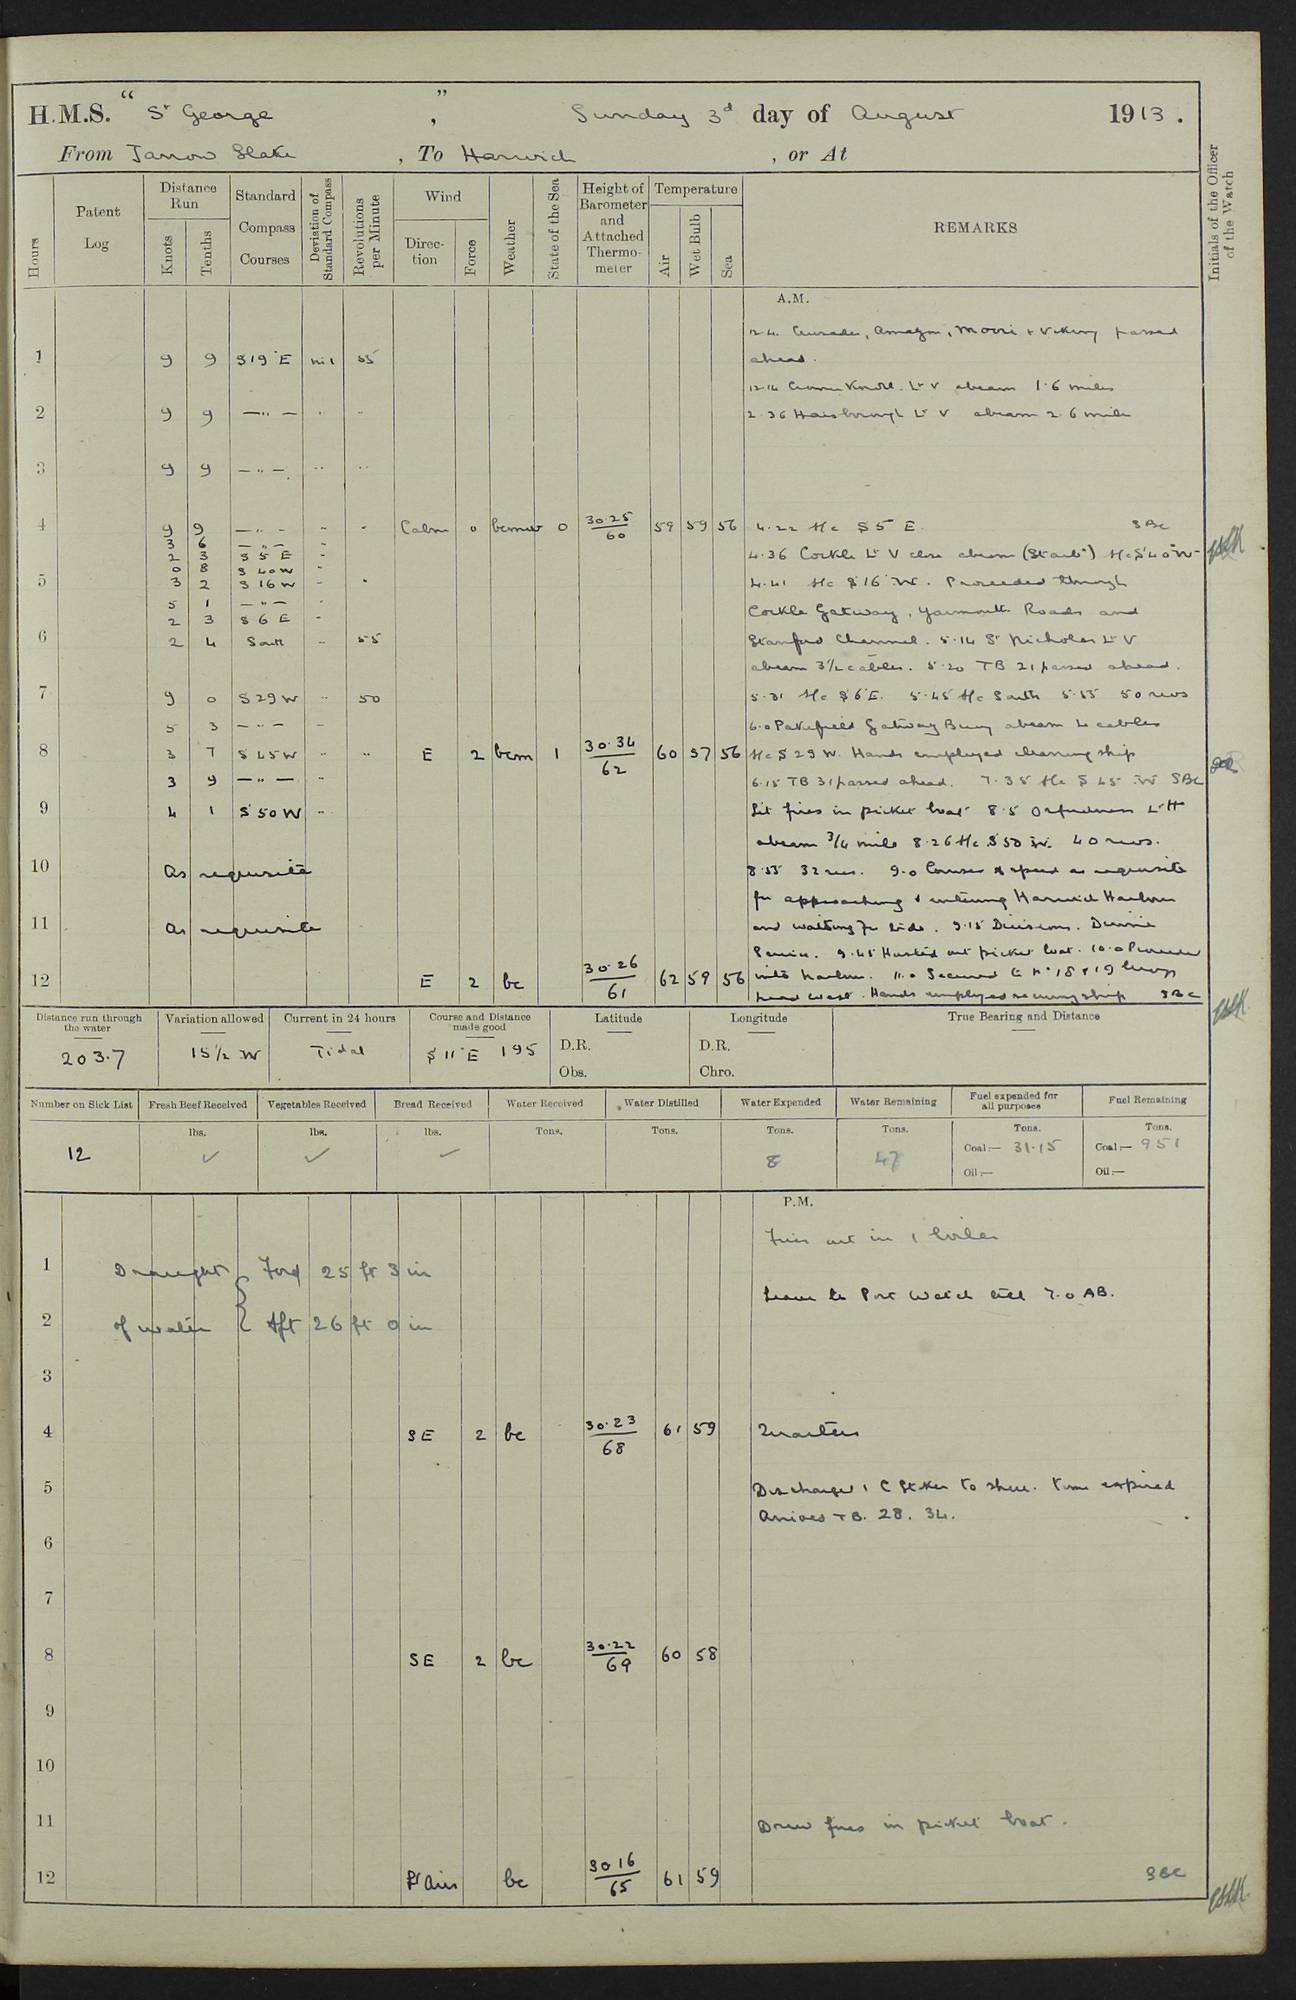 H.M.S. “ St George ” , Sunday 3d day of August 1913.
From Jarrow Slake , To Harwich , or At
Hours
Patent Log
Distance Run
Knots
Tenths
Standard Compass Courses
Deviation of Standard Compass
Revolutions per Minute
Wind
Direction
Force
Weather
State of the Sea
Height of Barometer and Attached Thermometer
Temperature
Air
Wet Bulb
Sea
REMARKS
Initials of the Officer of the Watch
A.M.
12.4. Crusader, Amazon, Maori & Viking passed
1 9 9 S19°E nil 55 ahead.
12.14 Cromer Knoll. Lt V abeam 1.6 miles
2 9 9 —"— " " 2.36 Haisborough Lt V abeam 2.6 miles
3 9 9 —"— " "
4 9 9 —"— " " Calm 0 bcmw 0 30.25/60 59 59 56 4.22 A/c S 5 E. SBC
3 6 —"— "
2 3 S 5 E " 4.36 Cockle Lt V close abeam (Starbd) A/c S 40 W
0 8 S 40 W "
5 3 2 S 16 W " " 4.41 A/c S 16 W. Proceeded through
5 1 —"— " Cockle Gatway, Yarmouth Roads and
2 3 S 6 E "
6 2 4 South " 55 Stanford Channel. 5.14 St Nicholas Lt V
abeam 3½ cables. 5.20 TB 21 passed ahead.
7 9 0 S 29 W " 50 5.31 A/c S 6 E. 5.45 A/c South 5.55 50 revs
5 3 —"— " 6.0 Pakefield Gatway Buoy abeam 4 cables
8 3 7 S 45 W " " E 2 bcm 1 30.34/62 60 57 56 A/c S 29 W. Hands employed cleaning ship
3 9 —"— " 6.15 TB 31 passed ahead. 7.35 A/c S 45 W SBC
9 4 1 S 50 W " Lit fires in picket boat 8.5 Orfordness Lt H
abeam 3/4 mile 8.26 A/c S 50 W. 40 revs.
10 As requisite 8.55 32 revs. 9.0 Courses & speed as requisite
for approaching & entering Harwich Harbour
11 As requisite and waiting for tide. 9.15 Divisions. Divine
Service. 9.45 Hoisted out picket boat. 10.0 Proceeded
12 E 2 bc 30.26/61 62 59 56 into harbour. 11.0 Secured to No 18 & 19 buoys
head west. Hands employed securing ship SBC
Distance run through the water
203.7
Variation allowed
15½ W
Current in 24 hours
Tidal
Course and Distance made good
S 11°E 195
Latitude
D.R.
Obs.
Longitude
D.R.
Chro.
True Bearing and Distance
Number on Sick List Fresh Beef Received Vegetables Received Bread Received Water Received Water Distilled Water Expended Water Remaining Fuel expended for all purposes Fuel Remaining
lbs. lbs. lbs. Tons. Tons. Tons. Tons. Tons. Tons.
12 ✓ ✓ ✓ 8 47 Coal:— 31.15 Coal:— 951
Oil:— Oil:—
P.M.
Fires out in 1 boiler
1 Draught { Ford 25 ft 3 in
Leave to Port Watch till 7.0 AB.
2 of water { Aft 26 ft 0 in
3
4 SE 2 bc 30.23/68 61 59 Quarters
5 Discharged 1 C Stoker to shore. time expired
Arrived TB. 28. 34.
6
7
8 SE 2 bc 30.22/69 60 58
9
10
11 Drew fires in picket boat.
12 Lt airs bc 30 16/65 61 59 SBC